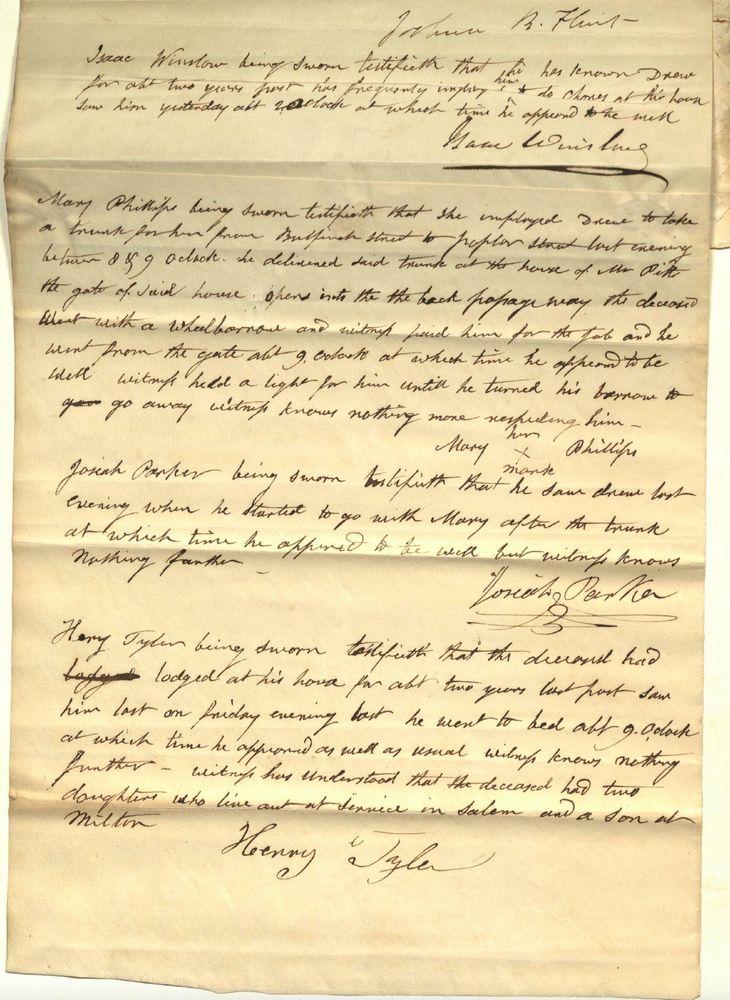 Joshua B. Flint
Isaac Winslow being sworn testifieth that he has known Drew
for abt two years past has frequently employ him to do chores at his house
saw him yesterday abt 2 oclock at which time he appeard to be well
Isaac Winslow
Mary Phillips being sworn testifieth that she imployed Drew to take
a trunk for her from Bulfinch street to poplar street last evening
between 8 & 9 oclock. he delivered said trunk at the house of Mr Pitts
the gate of said house opens into the the back passage way the deceased
went with a wheelbarrow and witness paid him for the job and he
went from the gate abt 9. oclock at which time he appeard to be
well witness held a light for him untill he turned his barrow to
go away witness knows nothing more respecting him -
her
Mary x Phillips
mark
Josiah Parker being sworn testifieth that he saw drew last
evening when he started to go with Mary after the trunk
at which time he appered to be well but witness knows
Nothing farther -
Josiah Parker
Henry Tyler being sworn testifieth that the deceased had
lodged at his house for abt two years last past saw
him last on friday evening last he went to bed abt 9. Oclock
at which time he appeared as well as usual witness knows nothing
further - witness has understood that the deceased had two
daughters who live out at service in Salem and a son at
Milton
Henry Tyler